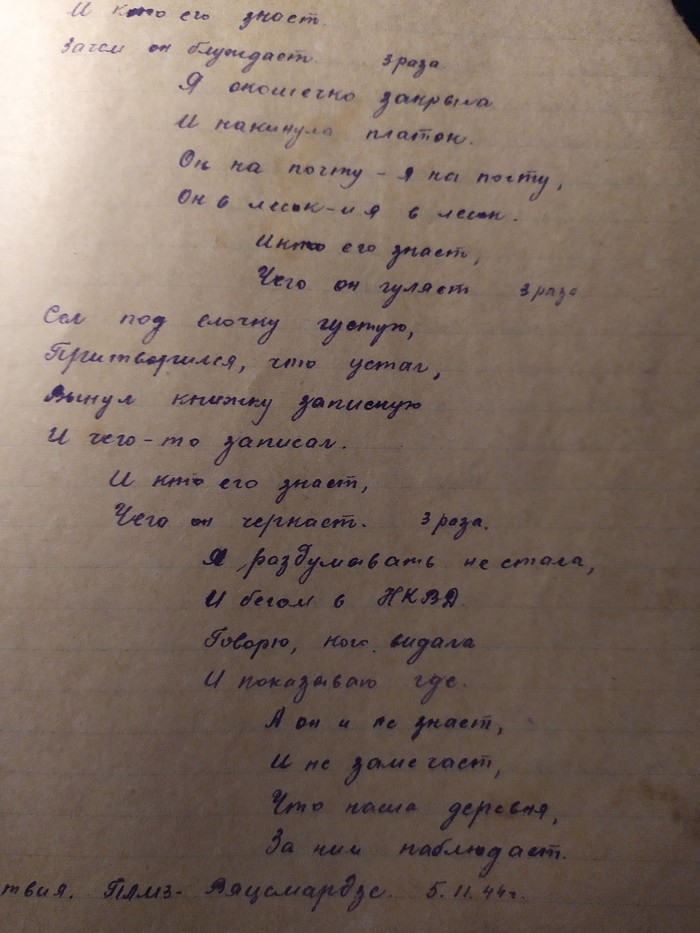 И кто его знает.
Зачем он блуждает 3 раза
Я окошечко закрыла
И накинула платок.
Он на почту - я на почту,
Он в лесок - и я в лесок.
И кто его знает,
Чего он гуляет 3 раза
Сел под елочку густую,
Притворился, что устал,
Вынул книжку записную
И чего-то записал.
И кто его знает,
Чего он черкает. 3 раза.
Я раздумывать не стала,
И бегом в НКВД.
Говорю, кого видала
И показываю где.
А он и не знает,
И не замечает,
Что наша деревня,
За ним наблюдает.
твия. Вяцемардзе. 5.11.44г.